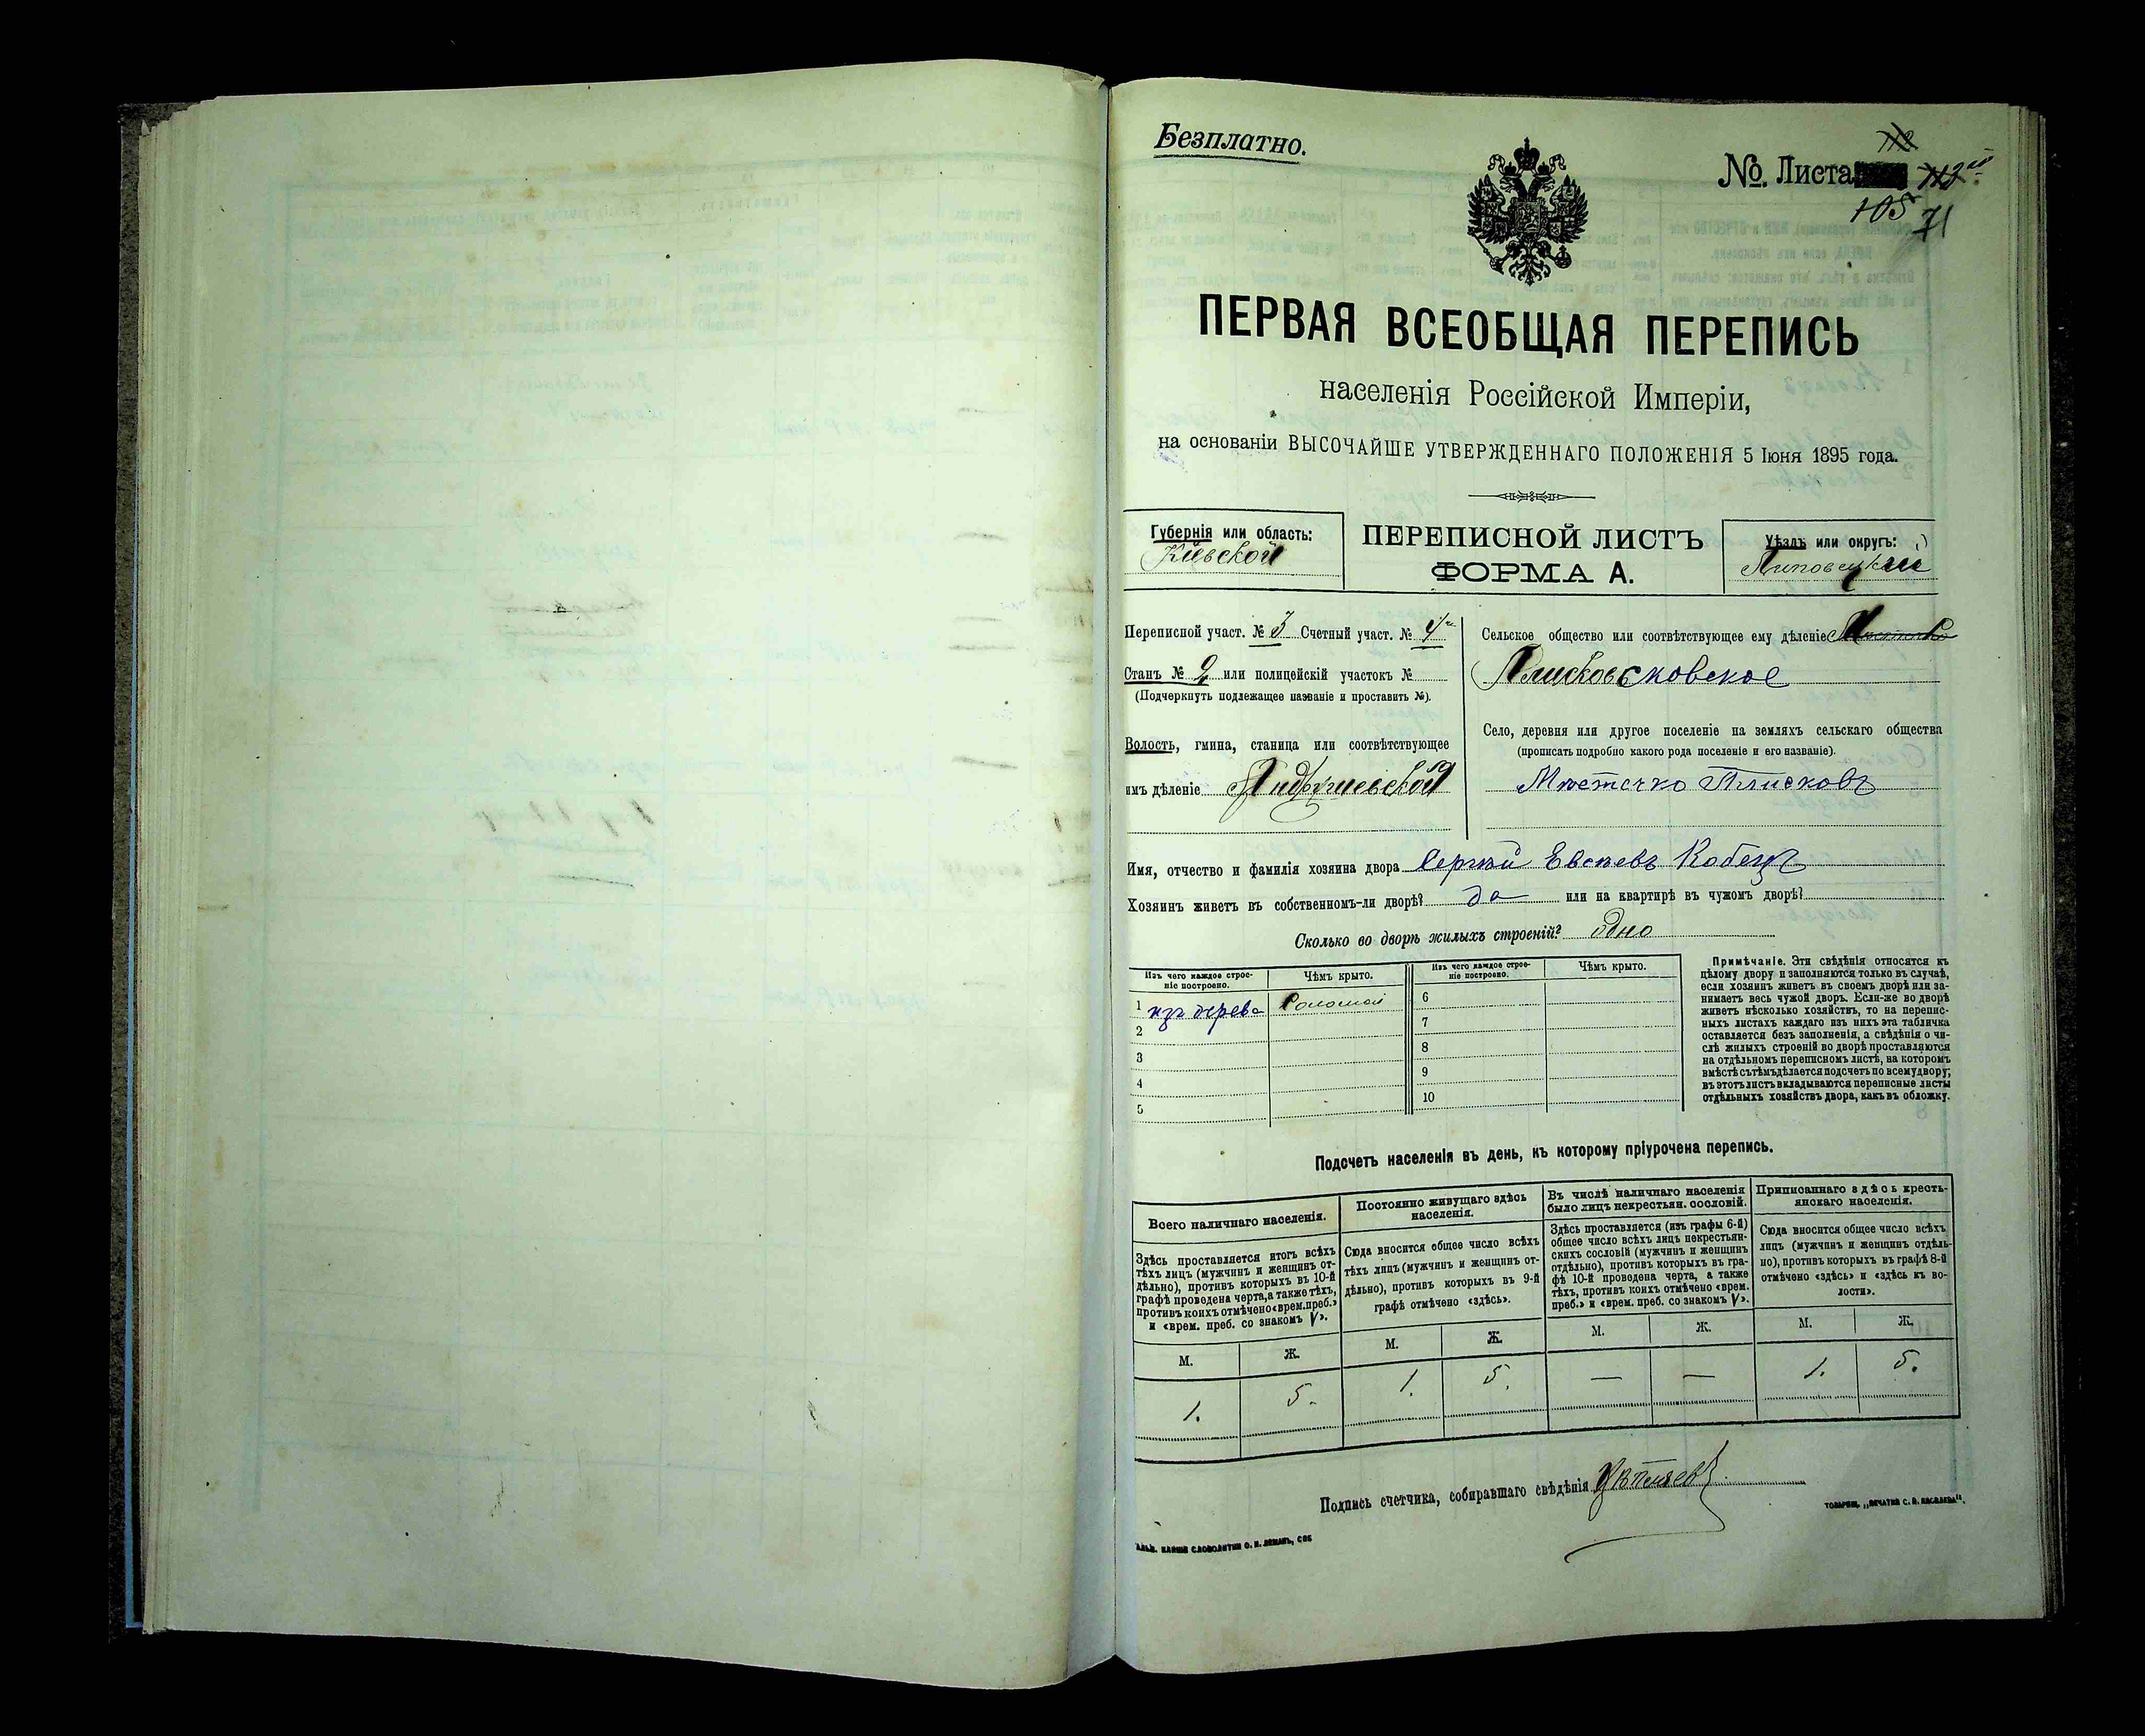 Безплатно.
№. Листа
105 71
ПЕРВАЯ ВСЕОБЩАЯ ПЕРЕПИСЬ
населенія Россійской Имперіи,
на основаніи ВЫСОЧАЙШЕ УТВЕРЖДЕННАГО ПОЛОЖЕНІЯ 5 Іюня 1895 года.
Губернія или область:
Кіевской
ПЕРЕПИСНОЙ ЛИСТЪ
ФОРМА А.
Уѣздъ или округъ:
Липовецкій
Переписной участ. № 3 Счетный участ. № 4
Станъ № 2 или полицейскій участокъ №
(Подчеркнуть подлежащее названіе и проставить №).
Волость, гмина, станица или соотвѣтствующее
имъ дѣленіе Андрушевской
Сельское общество или соотвѣтствующее ему дѣленіе
Село, деревня или другое поселеніе на земляхъ сельскаго общества
(прописать подробно какого рода поселеніе и его названіе).
Мѣстечко Плисковъ
Имя, отчество и фамилія хозяина двора Сергѣй Евсѣевъ
Хозяинъ живетъ въ собственномъ-ли дворѣ? да или на квартирѣ въ чужомъ дворѣ?
Сколько во дворѣ жилыхъ строеній? одно
Изъ чего каждое строе-
ніе построено.
Чѣмъ крыто.
Изъ чего каждое строе-
ніе построено.
Чѣмъ крыто.
1 изъ дерева Соломой 6
2 7
3 8
4 9
5 10
Примѣчаніе. Эти свѣдѣнія относятся къ
цѣлому двору и заполняются только въ случаѣ,
если хозяинъ живетъ въ своемъ дворѣ или за-
нимаетъ весь чужой дворъ. Если-же во дворѣ
живетъ нѣсколько хозяйствъ, то на перепис-
ныхъ листахъ каждаго изъ нихъ эта табличка
оставляется безъ заполненія, а свѣдѣнія о чи-
слѣ жилыхъ строеній во дворѣ проставляются
на отдѣльномъ переписномъ листѣ, на которомъ
вмѣстѣ съ тѣмъ дѣлается подсчетъ по всему двору;
въ этотъ листъ вкладываются переписные листы
отдѣльныхъ хозяйствъ двора, какъ въ обложку.
Подсчетъ населенія въ день, къ которому пріурочена перепись.
Всего наличнаго населенія.
Здѣсь проставляется итогъ всѣхъ
тѣхъ лицъ (мужчинъ и женщинъ от-
дѣльно), противъ которыхъ въ 10-й
графѣ проведена черта, а также тѣхъ,
противъ коихъ отмѣчено «врем. преб.»
и «врем. преб. со знакомъ V».
М. Ж.
1. 5.
Постоянно живущаго здѣсь
населенія.
Сюда вносится общее число всѣхъ
тѣхъ лицъ (мужчинъ и женщинъ от-
дѣльно), противъ которыхъ въ 9-й
графѣ отмѣчено «здѣсь».
М. Ж.
1. 5.
Въ числѣ наличнаго населенія
было лицъ некрестьян. сословій.
Здѣсь проставляется (изъ графы 6-й)
общее число всѣхъ лицъ некрестьян-
скихъ сословій (мужчинъ и женщинъ
отдѣльно), противъ которыхъ въ гра-
фѣ 10-й проведена черта, а также
тѣхъ, противъ коихъ отмѣчено «врем.
преб.» и «врем. преб. со знакомъ V».
М. Ж.
— —
Приписаннаго здѣсь кресть-
янскаго населенія.
Сюда вносится общее число всѣхъ
лицъ (мужчинъ и женщинъ отдѣль-
но), противъ которыхъ въ графѣ 8-й
отмѣчено «здѣсь» и «здѣсь къ во-
лости».
М. Ж.
1. 5.
Подпись счетчика, собиравшаго свѣдѣнія